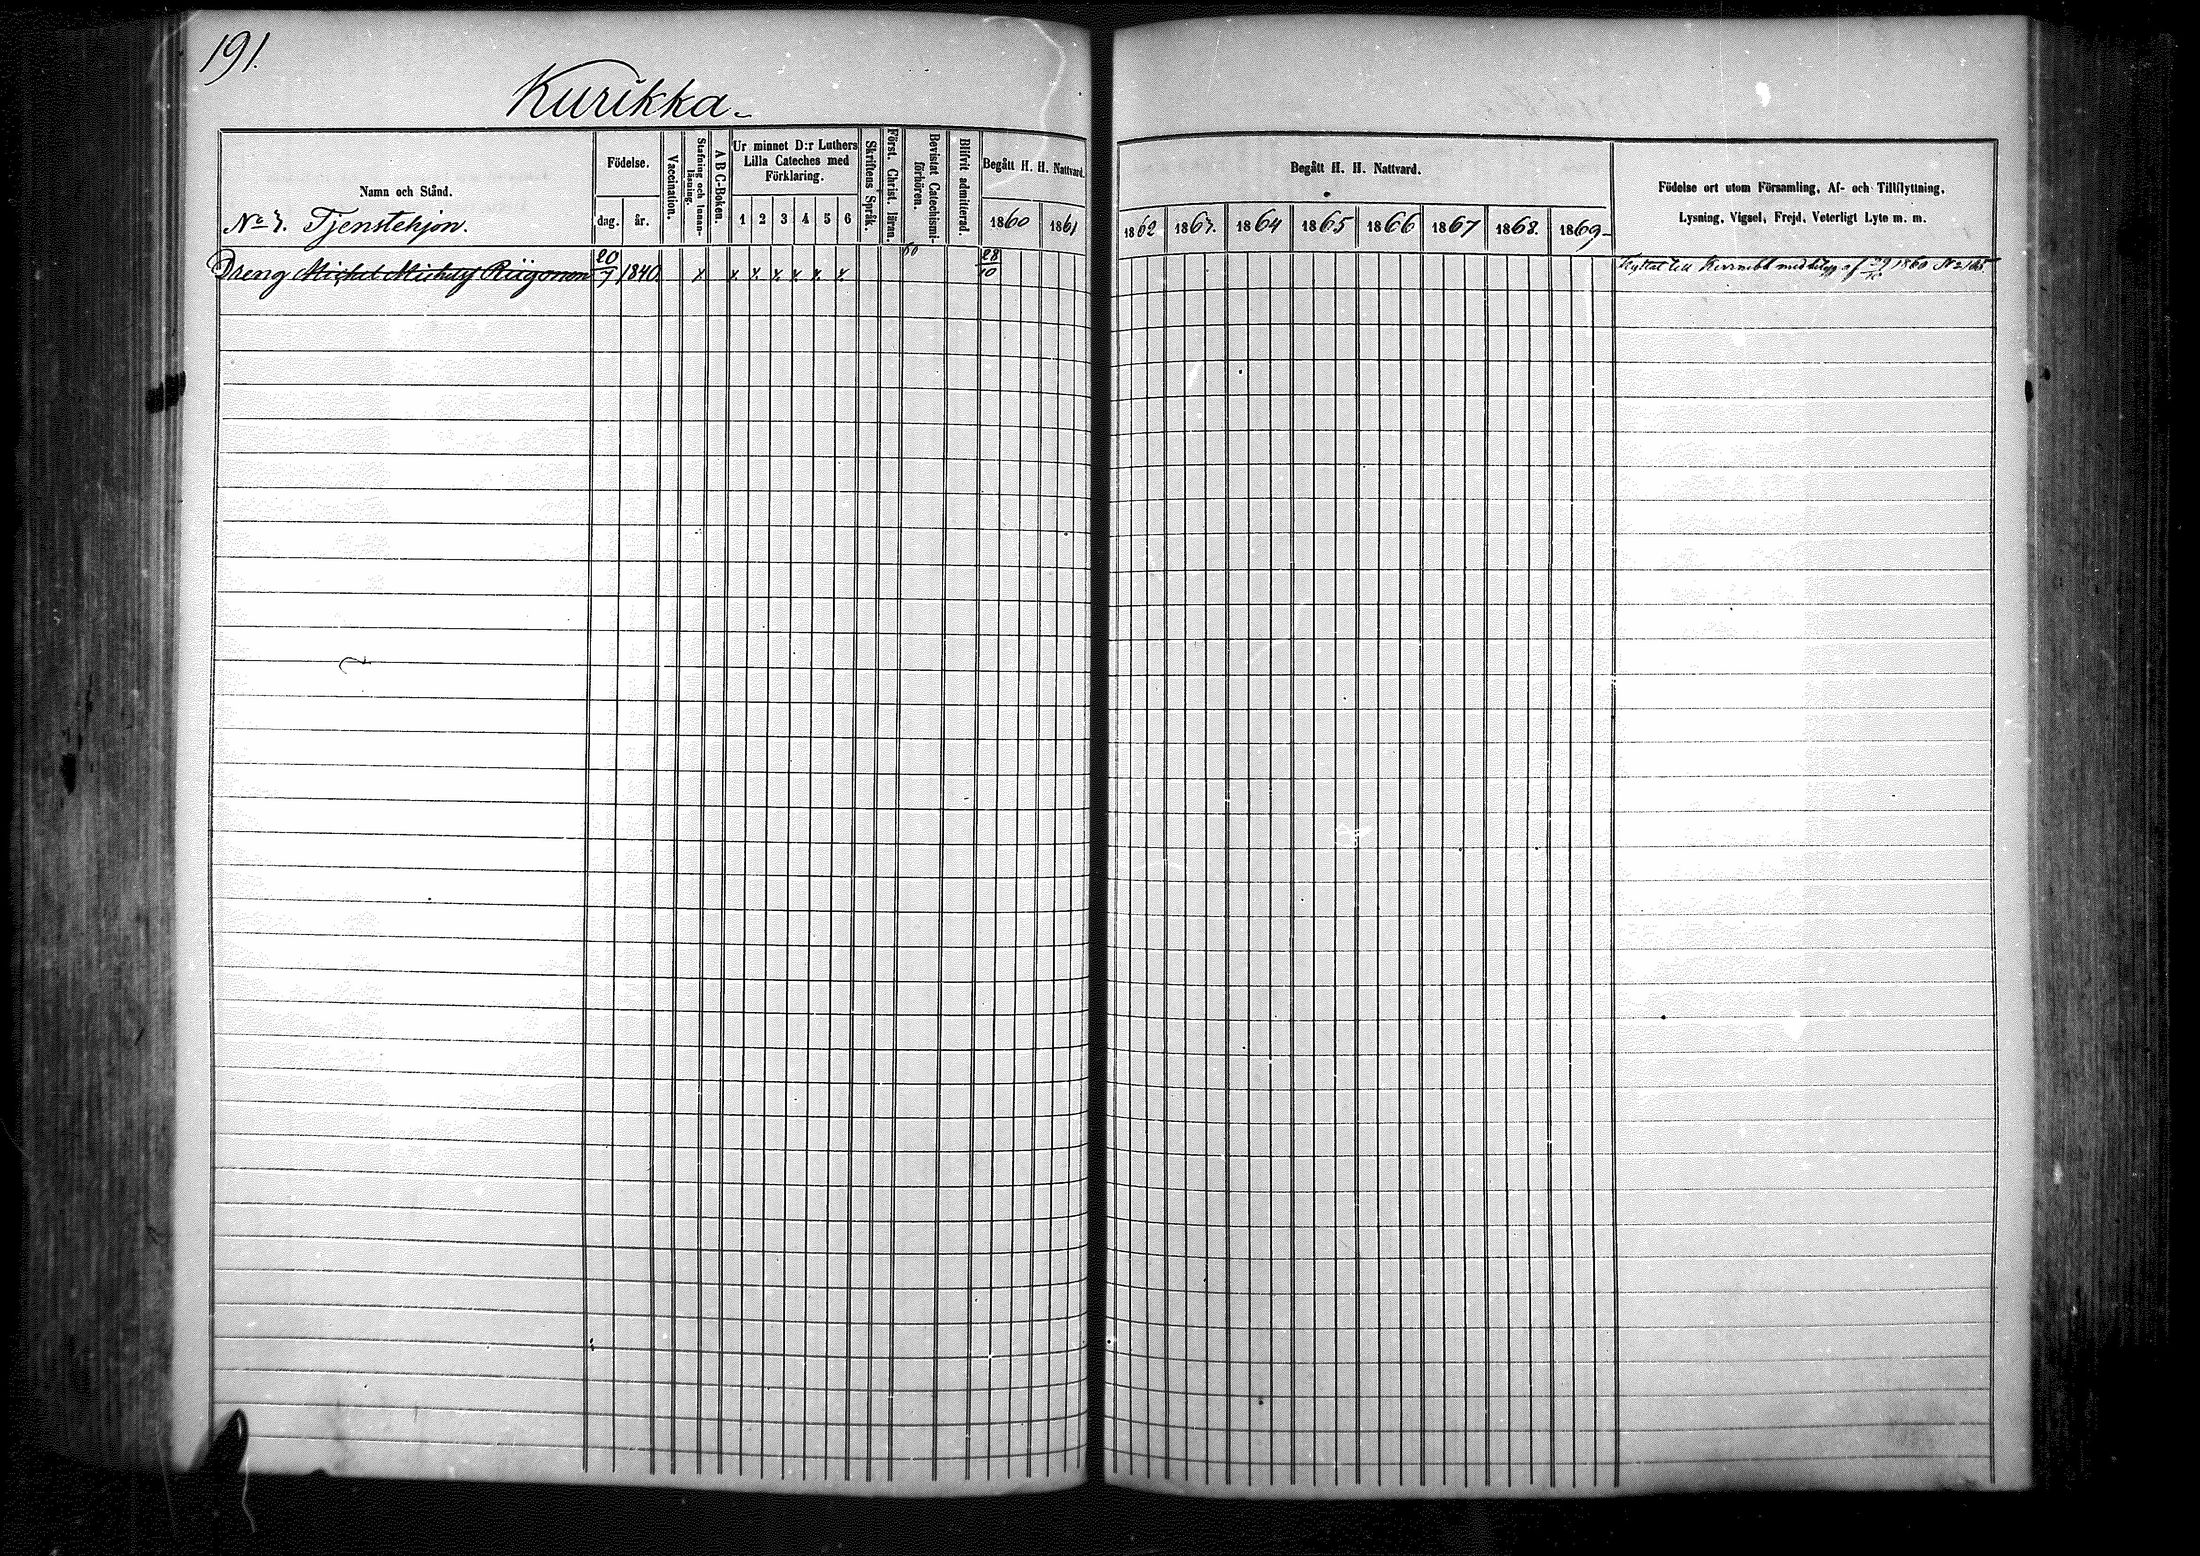 191.
Kurikka.
Namn och Stånd.
Födelse.
dag. år.
Vaccination.
Stafning och Innanläsning.
A B C-Boken.
Ur minnet D:r Luthers Lilla Cateches med Förklaring.
1 2 3 4 5 6
Skriftens Språk.
Först. Christ. läran.
Bevistat Catechismiförhören.
Blifvit admitterad.
Begått H. H. Nattvard.
1860 1861
Begått H. H. Nattvard.
1862 1863. 1864 1865 1866 1867 1868. 1869
Födelse ort utom Församling, Af- och Tillflyttning,
Lysning, Vigsel, Frejd, Veterligt Lyte m. m.
Tjenstehjon.
Dreng Michel 20/7 1840. x x x x x x x 60 28/10 till med af 1860 No